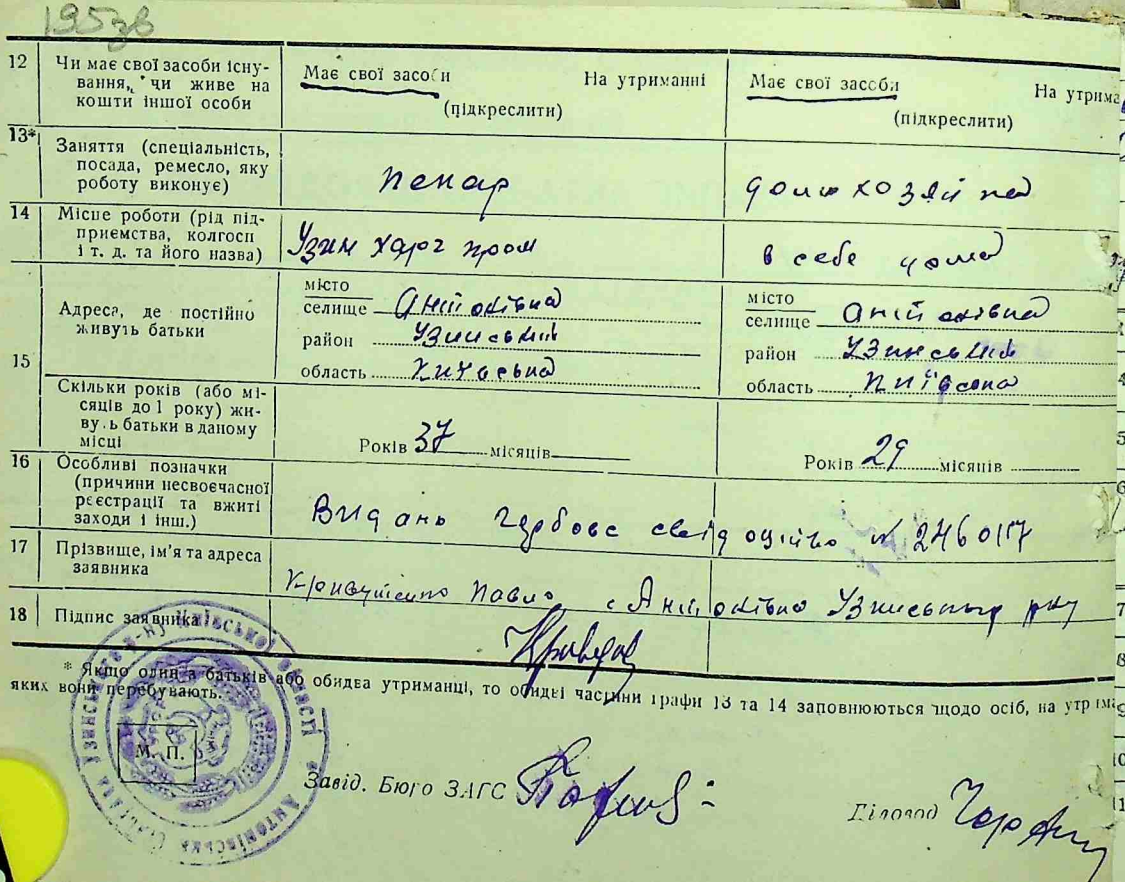 195зв
12 Чи має свої засоби існу-
вання, чи живе на
кошти іншої особи
Має свої засоби На утриманні
(підкреслити)
Має свої засоби На утрима
(підкреслити)
13* Заняття (спеціальність,
посада, ремесло, яку
роботу виконує)
пекар
домохозяйка
14 Місце роботи (рід під-
приємства, колгосп
і т. д. та його назва)
Узин харч пром
в себе дома
15 Адреса, де постійно
живуть батьки
місто
селище Антонівка
район Узинський
область Київська
місто
селище Антонівка
район Узинський
область Київська
Скільки років (або мі-
сяців до 1 року) жи-
вуть батьки в даному
місці
Років 37 місяців
Років 29 місяців
16 Особливі позначки
(причини несвоєчасної
реєстрації та вжиті
заходи і інш.)
Видань гербове свідоцтво № 246017
17 Прізвище, ім'я та адреса
заявника
Павло с Антонівка Узинського р-ну
18 Підпис заявника
* Якщо один з батьків або обидва утриманці, то обидві частини графи 13 та 14 заповнюються щодо осіб, на утрима
яких вони перебувають.
М. П.
Завід. Бюро ЗАГС
Діловод